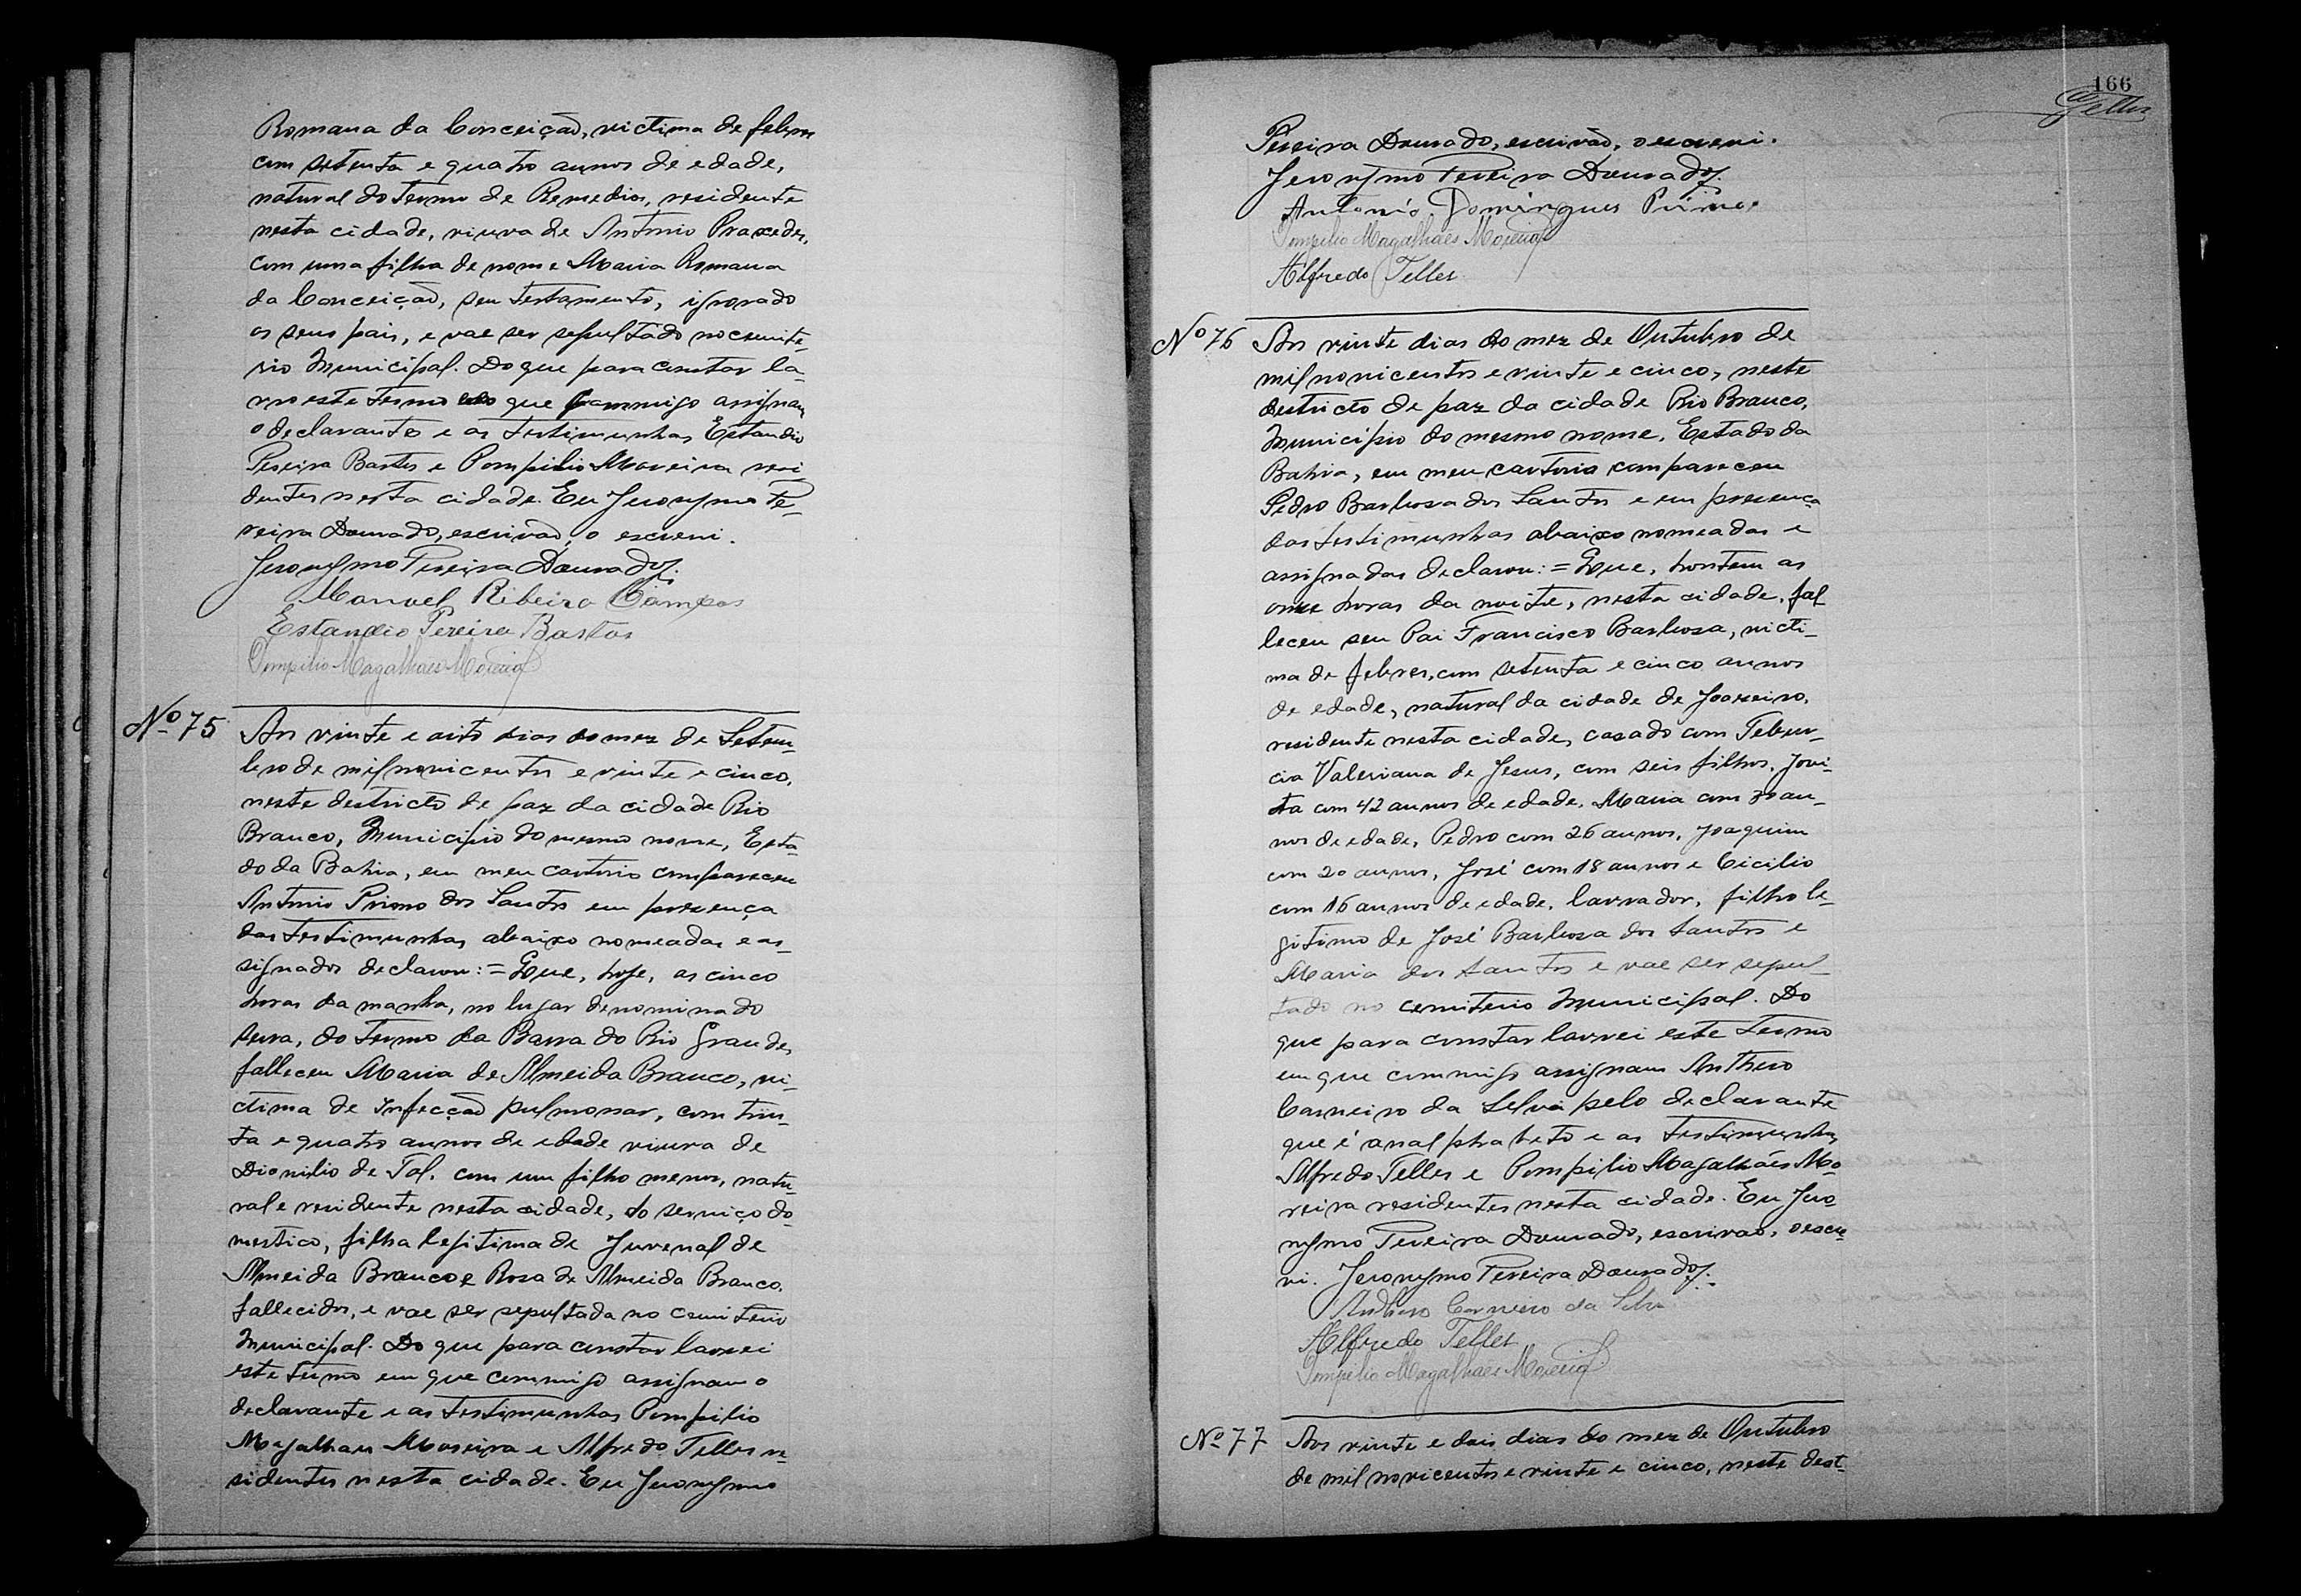 Romana da Conceição, victima de febres
com setenta e quatro annos de edade,
natural do termo de Remedios, residente
nesta cidade, viuva de Antonio Praxedes,
com uma filha de nome Maria Romana
da Conceição, sem testamento, ignorado
os seus pais, e vae ser sepultado no cemite-
rio Municipal. Do que para constar la-
vro este termo que commigo assignam
o declarante e as testimunhas Estandio
Pereira Bastos e Pompilio Moreira resi
dentes nesta cidade. Eu Jeronymo Pe-
reira Dourado, escrivão, o escrevi.
Jeronymo Pereira Dourado.
Manoel Ribeiro Campos
Estandio Pereira Bastos
Pompilio Magalhães Moreira
Nº 75
Aos vinte e oito dias do mez de Setem-
bro de mil novicentos e vinte e cinco,
neste destricto de paz da cidade Rio
Branco, Municipio do mesmo nome, Esta-
do da Bahia, em meu cartorio compareceu
Antonio Primo dos Santos em presença
das testimunhas abaixo nomeadas e as-
signados declarou: = Que, hoje, as cinco
horas da manha, no lugar denominado
Serra, do termo da Barra do Rio Grande,
falleceu Maria de Almeida Branco, vi-
ctima de infecção pulmonar, com trin-
ta e quatro annos de edade viuva de
Dionilio de Tal, com um filho menor, natu-
ral e residente nesta cidade, do serviço do-
mestico, filha legitima de Juvenal de
Almeida Branco e Rosa de Almeida Branco,
fallecidos, e vae ser sepultada no cemiterio
Municipal. Do que para constar lavrei
este termo em que commigo assignam o
declarante e as testimunhas Pompilio
Magalhaes Moreira e Alfredo Telles re-
sidentes nesta cidade. Eu Jeronymo
166
Telles
Pereira Dourado, escrivão, o escrevi.
Jeronymo Pereira Dourado.
Antonio Domingues Primo
Pompilio Magalhães Moreira
Alfredo Telles
Nº 76
Aos vinte dias do mez de Outubro de
mil novicentos e vinte e cinco, neste
destricto de paz da cidade Rio Branco,
Municipio do mesmo nome, Estado da
Bahia, em meu cartorio compareceu
Pedro Barbosa dos Santos e em presença
das testimunhas abaixo nomeadas e
assignadas declarou: = Que, hontem as
onze horas da noite, nesta cidade, fal
leceu seu Pai Francisco Barbosa, victi-
ma de febres, com setenta e cinco annos
de edade, natural da cidade de Joazeiro,
residente nesta cidade, casado com Tebur-
cia Valeriana de Jesus, com seis filhos, Jovi-
ta com 42 annos de edade, Maria com 30 an-
nos de edade, Pedro com 26 annos, Joaquim
com 20 annos, José com 18 annos e Cicilio
com 16 annos de edade, lavrador, filho le-
gitimo de José Barbosa dos Santos e
Maria dos Santos e vae ser sepul-
tado no cemiterio Municipal. Do
que para constar lavrei este termo
em que commigo assignam Anthero
Carneiro da Selva pelo declarante
que é analphabeto e as testimunhas
Alfredo Telles e Pompilio Magalhães Mo-
reira residentes nesta cidade. Eu Jero-
nymo Pereira Dourado, escrivão, o escre-
vi. Jeronymo Pereira Dourado.
Anthero Carneiro da Silva
Alfredo Telles
Pompilio Magalhães Moreira
Nº 77
Aos vinte e dois dias do mez de Outubro
de mil novicentos e vinte e cinco, neste dest-